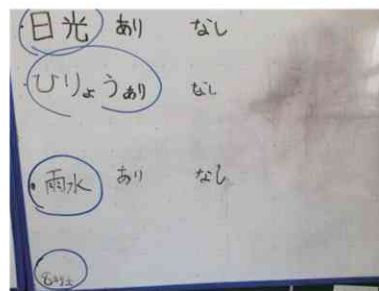 ・日光 あり なし
ひりょうあり なし
・雨水 あり なし